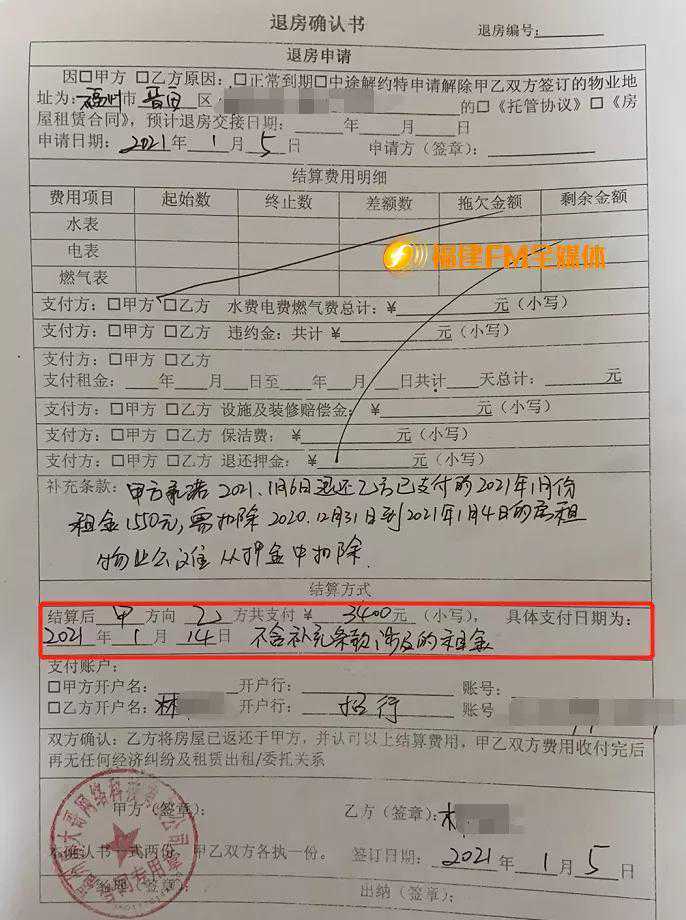 退房确认书
退房编号:
退房申请
因□甲方 □乙方原因:□正常到期□中途解约特申请解除甲乙双方签订的物业地
址为:福州市晋安区 的□《托管协议》□《房
屋租赁合同》,预计退房交接日期: 年 月 日
申请日期:2021年1月5日 申请方(签章):
结算费用明细
费用项目 起始数 终止数 差额数 拖欠金额 剩余金额
水表
电表
燃气表
福建FM全媒体
支付方:□甲方 □乙方 水费电费燃气费总计:¥ 元(小写)
支付方:□甲方 □乙方 违约金:共计 ¥ 元(小写)
支付方:□甲方 □乙方
支付租金: 年 月 日至 年 月 日共计 天总计: 元
支付方:□甲方 □乙方 设施及装修赔偿金:¥ 元(小写)
支付方:□甲方 □乙方 保洁费:¥ 元(小写)
支付方:□甲方 □乙方 退还押金:¥ 元(小写)
补充条款:甲方承诺2021.1月6日退还乙方已支付的2021年1月份
租金1550元,需扣除2020.12月31日到2021年1月4日的房租
物业公摊从押金中扣除.
结算方式
结算后 甲 方向 乙 方共支付 ¥ 3400元(小写),具体支付日期为:
2021年1月14日 不含补充条款涉及的租金
支付账户:
□甲方开户名: 开户行: 账号:
□乙方开户名:林 开户行:招行 账号
双方确认:乙方将房屋已返还于甲方,并认可以上结算费用,甲乙双方费用收付完后
再无任何经济纠纷及租赁出租/委托关系
甲方(签章): 乙方(签章):林
本确认书一式两份,甲乙双方各执一份。 签订日期:2021年1月5日
(签章): 出纳(签章):